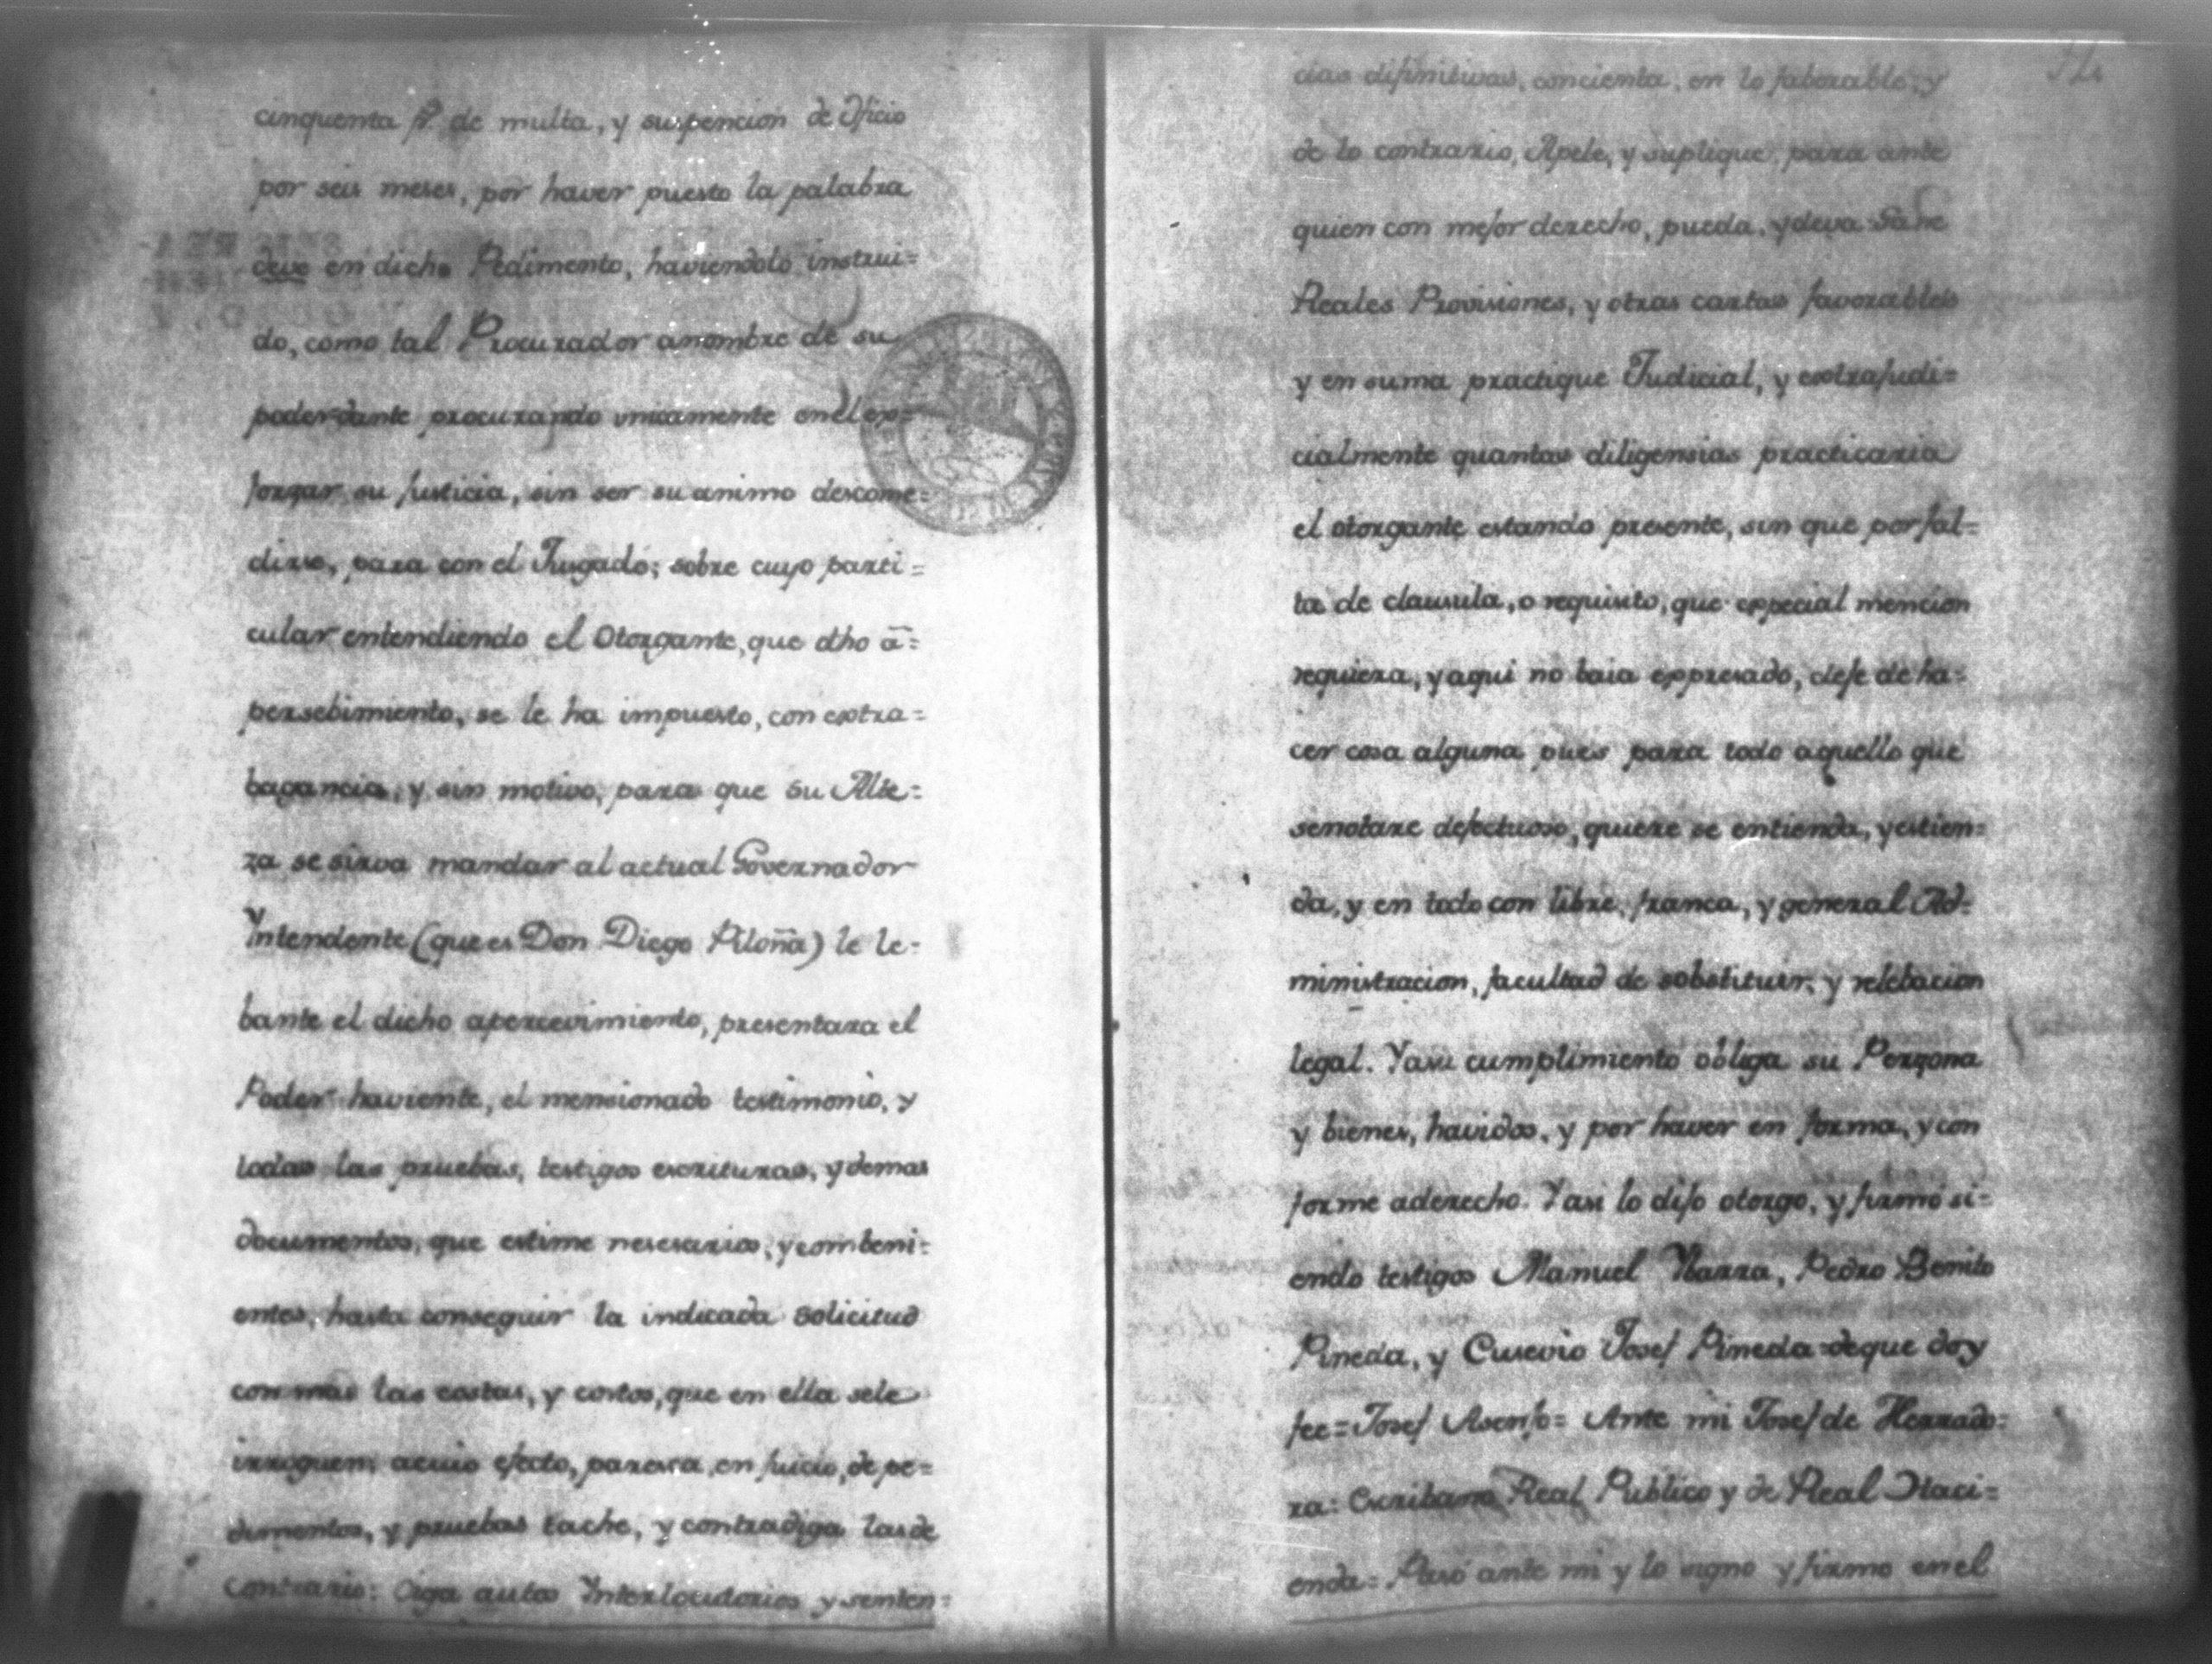 cinquenta p.s de multa, y suspencion de Oficio
por seis meses, por haver puesto la palabra
deve en dicho Pedimento, haviendolo instrui=
do, como tal Procurador anombre de su
poderdante procurando vnicamente enel ex=
forzar su justicia, sin ser su animo descome=
dirse, para con el Jusgado; sobre cuyo parti=
cular entendiendo el Otorgante, que dho a=
persebimiento, se le ha impuesto, con extra=
bagancia, y sin motivo, para que su Alte=
za se sirva mandar al actual Governador
Yntendente (que es Don Diego Piloña) le le=
bante el dicho apercevimiento, presentara el
Poder haviente, el mensionado testimonio, y
todas las pruebas, testigos escrituras, y demas
documentos, que estime nesesarios, y combeni=
entes, hasta conseguir la indicada solicitud
con mas las costas, y costos, que en ella sele
irroguen; acuio efecto, paresca, en juicio, de pe=
dimentos, y pruebas tache, y contradiga las de
contrario: Oiga autos Ynterlocutorios y senten=
cias difinitivas, concienta, en lo faborable, y
de lo contrario, Apele, y suplique, para ante
quien con mejor derecho, pueda, y deva Gane
Reales Provisiones, y otras cartas favorables
y en suma practique Judicial, y extrajudi=
cialmente quantas diligensias practicaria
el otorgante estando presente, sin que por fal=
ta de clausula, o requisito, que especial mencion
requiera, y aqui no baia expresado, deje de ha=
cer cosa alguna pues para todo aquello que
senotare defectuoso, quiere se entienda, y estien=
da, y en todo con libre, franca, y general Ad=
ministracion, facultad de sobstituir, y relebacion
legal. Yasu cumplimiento obliga su Perzona
y bienes, havidos, y por haver en forma, y con
forme aderecho. Yasi lo dijo otorgo, y firmó si=
endo testigos Manuel Ybarra, Pedro Benito
Pineda, y Eusevio Josef Pineda deque doy
fee=Josef Asenjo= Ante mi Josef de Herrado=
ra: Escribano Real Publico y de Real Haci=
enda= Pasó ante mi y lo signo y firmo en el